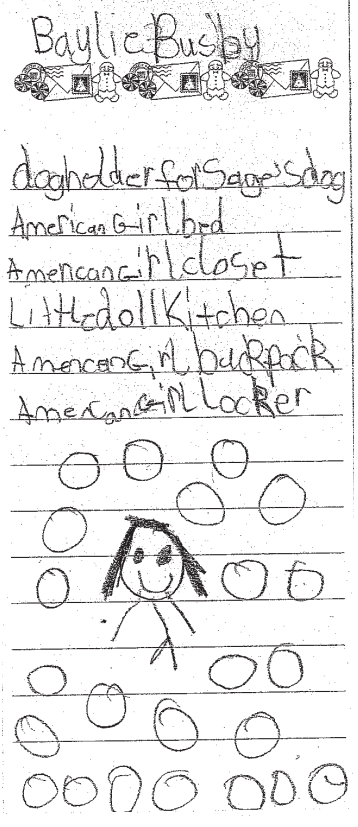 Baylie Busby
dogholder for Sage's dog
American Girl bed
American Girl closet
Little doll Kitchen
American Girl backpack
American Girl Locker